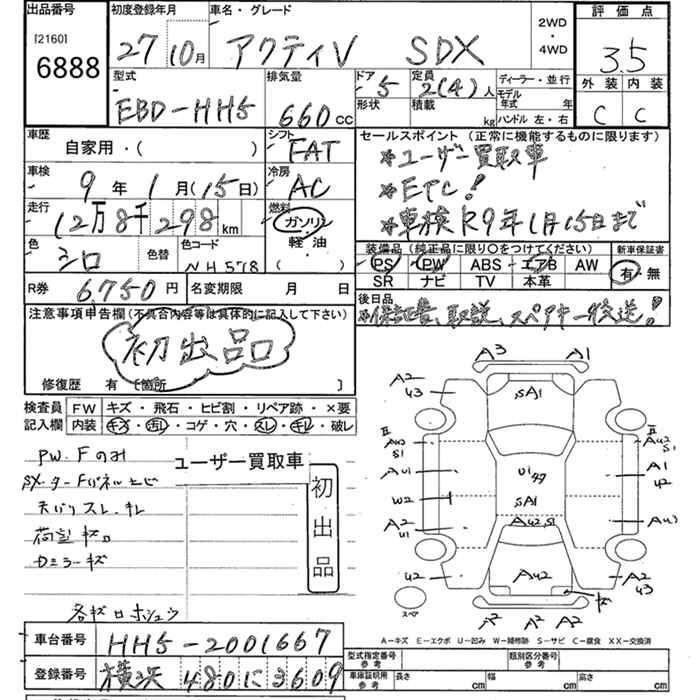 出品番号
[2160]
6888
初度登録年月
27 10月
車名・グレード
アクティV SDX
2WD
・
4WD
評価点
3.5
外装 内装
C C
型式
EBD-HH5
排気量
660 cc
ドア
5
形状
定員
2(4)人
積載
kg
ディーラー・並行
モデル
年式 年
ハンドル 左・右
車歴
自家用・( )
シフト
FAT
車検
9年 1月(15日)
冷房
AC
走行
12万8千298 km
燃料
ガソリン
軽・油
( )
色
シロ
色替
色コード
NH578
R券
6,750円
名変期限 月 日
セールスポイント (正常に機能するものに限ります)
※ユーザー買取車
※ETC!
※車検R9年1月15日まで
装備品(純正品に限り○をつけてください)
新車保証書
PS PW ABS エアB AW
SR ナビ TV 本革
有・無
後日品
※保証書、取説、スペアキー後送!
注意事項申告欄(不具合内容等は具体的に記入して下さい)
初出品
修復歴 有 [箇所 ]
検査員
記入欄
FW キズ・飛石・ヒビ割・リペア跡・×要
内装 キズ・汚レ・コゲ・穴・スレ・キレ・破レ
PW.Fのみ
ユーザー買取車
初出品
天バリスレ.キレ
荷室キズ
Dミラーキズ
A3 A1
A2
43
SA1
A1
42
W2
A2
U1
SA1
A42.S1
A43
42
A42
A2
43
スペア
A2 A2 A2
A-キズ E-エクボ U-凹み W-補修跡 S-サビ C-腐食 XX-交換済
車台番号
HH5-2001667
登録番号
横浜 480に3609
型式指定番号
参考
類別区分番号
参考
車庫証明用
参考
長さ cm
幅 cm
高さ cm